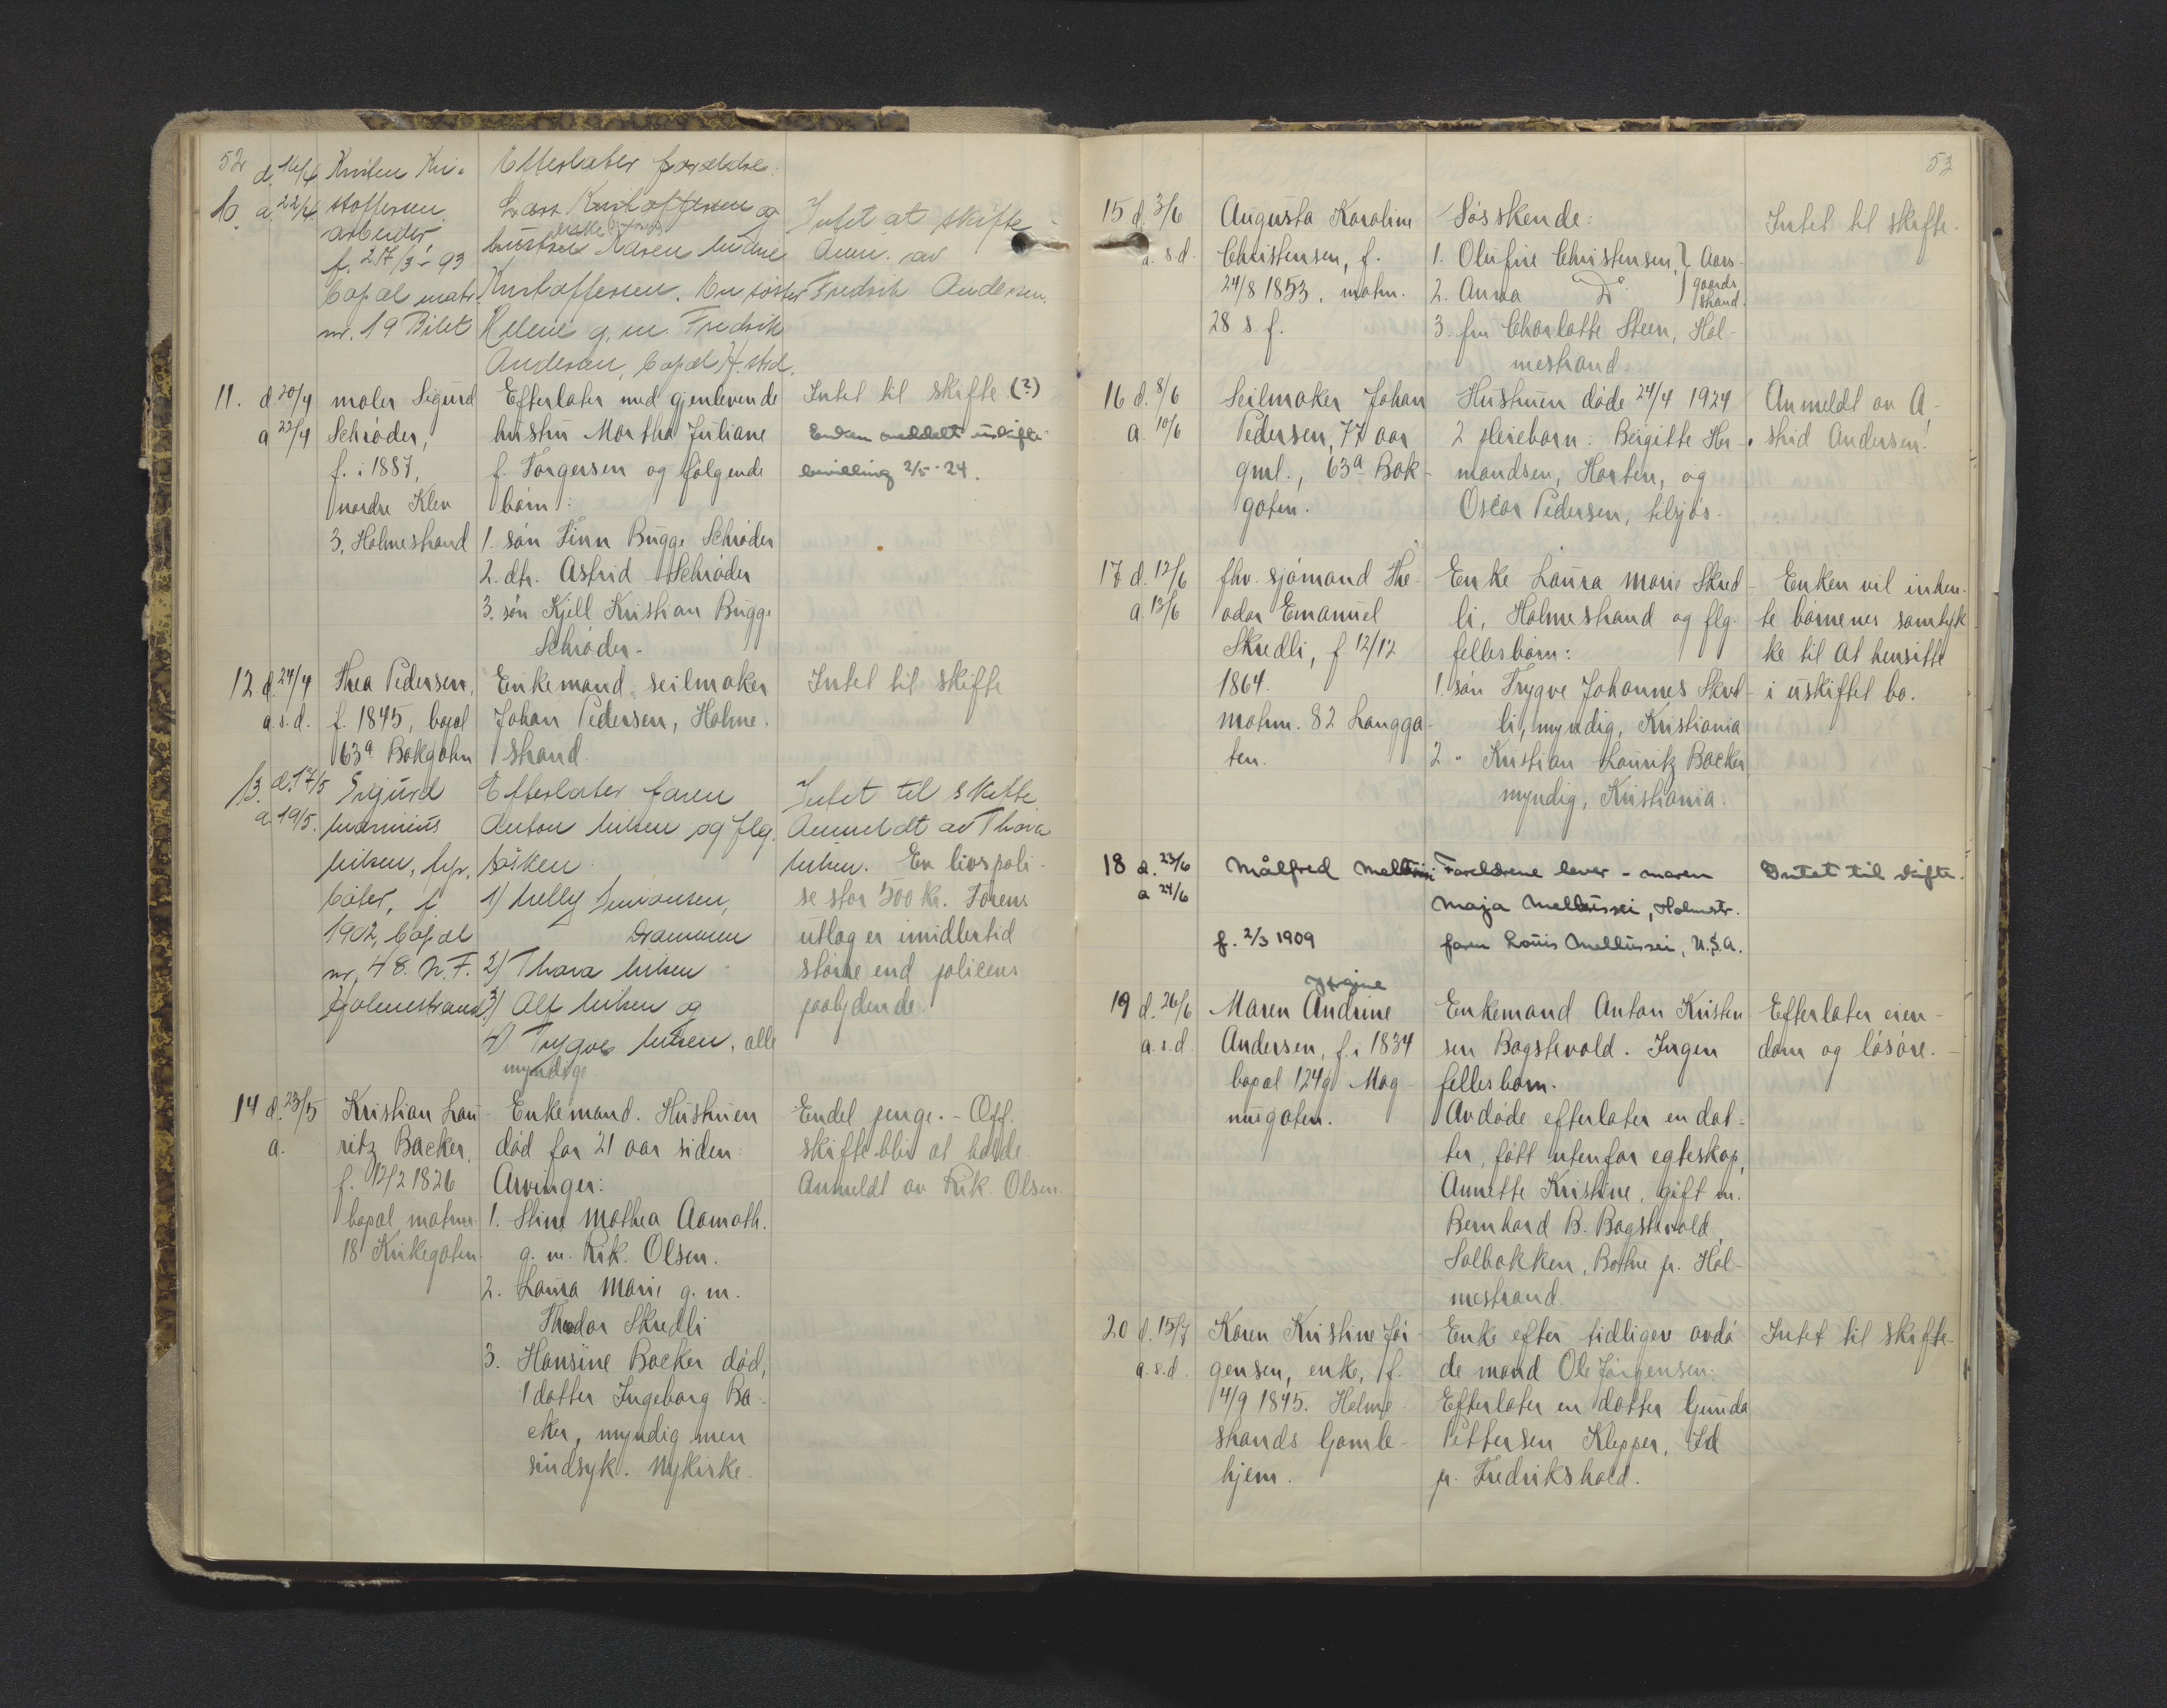 52
d. 16/4 Kristen Kri-
10. a. 22/4. stoffersen,
arbeider,
f. 27/3-93
bopæl matr.
nr. 19 Bilet
Efterlater forældre:
Lars Kristoffersen og
enke
hustru Maren
Kristoffersen. En søster
Helene g. m. Fredrik
Andersen, bopæl H.strd.
Intet at skifte
Anm. av
Fredrik Andersen.
11. d. 20/4 maler Sigurd
a 22/4 Schrøder,
f. i 1887,
nordre Klev
3, Holmestrand
Efterlater med gjenlevende
hustru Martha Juliane
f. Torgersen og følgende
børn:
1. søn Finn Bugge Schrøder
2. dtr. Astrid Schrøder
3. søn Kjell Kristian Bugge
Schrøder.
Intet til skifte (?)
Enken meddelt uskifte-
bevilling 2/5-24.
12 d. 24/4 Thea Pedersen,
a. s. d. f. 1845, bopæl
63a Bakgaten
Enkemand seilmaker
Johan Pedersen, Holme-
strand.
Intet til skifte
13. d. 17/5 Sigurd
a 19/5. Marinius
Nilsen,
f.
1902, bopæl
nr. 48. N. F.
Holmestrand
Efterlater faren
Anton Nilsen og flg.
søsken
1) Nelly Simonsen,
Drammen
2) Thora Nilsen
3) Alf Nilsen og
4) Trygve Nilsen, alle
myndige
Intet til skifte.
Anmeldt av Thora
Nilsen. En livspoli-
se stor 500 kr. Farens
utlæg er imidlertid
større end policens
paalydende.
14 d. 23/5 Kristian Lau-
a. ritz Backer,
f. 12/2 1826
bopæl matrnr.
18 Kirkegaten
Enkemand. Hustruen
død for 21 aar siden.
Arvinger:
1. Stine Mathea Aamoth.
g. m. Rik. Olsen.
2. Laura Marie g. m.
Theodor Skredli
3. Hansine Backer død,
1 datter Ingeborg Ba-
cker, myndig men
sindsyk. Nykirke.
Endel penge. - Off.
skifte blir at holde
Anmeldt av Rik. Olsen.
53
15 d. 3/6 Augusta Karoline
a. s. d. Christensen, f.
24/8 1853, matrn.
28 s. f.
Søsskende:
1. Olufine Christensen, } Aars-
2. Anna Do } gaards
strand.
3. fru Charlotte Steen, Hol-
mestrand.
Intet til skifte.
16 d. 8/6 Seilmaker Johan
a. 10/6 Pedersen, 77 aar
gml., 63a Bak-
gaten.
Hustruen døde 24/4 1924
2 pleiebarn: Birgitte Her-
mandsen, Horten, og
Oscar Pedersen, tilsjøs.
Anmeldt av A-
strid Andersen.
17 d. 12/6 fhv. sjømand The-
a. 13/6 odor Emanuel
Skredli, f. 12/12
1864.
matrn. 82 Langga-
ten.
Enke Laura Marie Skred-
li, Holmestrand og flg.
fellesbørn:
1. søn Trygve Johannes Skred-
li, myndig, Kristiania
2 " Kristian Lauritz Backer
myndig, Kristiania.
Enken vil inhen-
te børnenes samtyk-
ke til at hensitte
i uskiftet bo.
18 d. 23/6 Målfred
a 24/6
f. 2/3 1909
Foreldrene lever - moren
Maja Mellussei, Holmstr.
faren Louis Mellussei, U.S.A.
Intet til skifte.
19 d. 26/6 Maren Andrine
a. s. d. Andersen, f. i 1834
bopæl 124g Mag-
nusgaten.
Enkemand Anton Kristen
sen Bogstvold. Ingen
fellesbarn.
Avdøde efterlater en dat-
ter, født utenfor egteskap,
Annette Kristine, gift m.
Bernhard B. Bogstvold,
Solbakken, Botne pr. Hol-
mestrand.
Efterlater eien-
dom og løsøre.
20 d. 15/7 Karen Kristine Jør-
a. s. d. gensen, enke, f.
4/9 1845. Holme-
strands Gamle-
hjem.
Enke efter tidligere avdø
de mand Ole Jørgensen.
Efterlater en datter Gunda
Pettersen Klepper, Id
pr. Fredrikshald.
Intet til skifte.